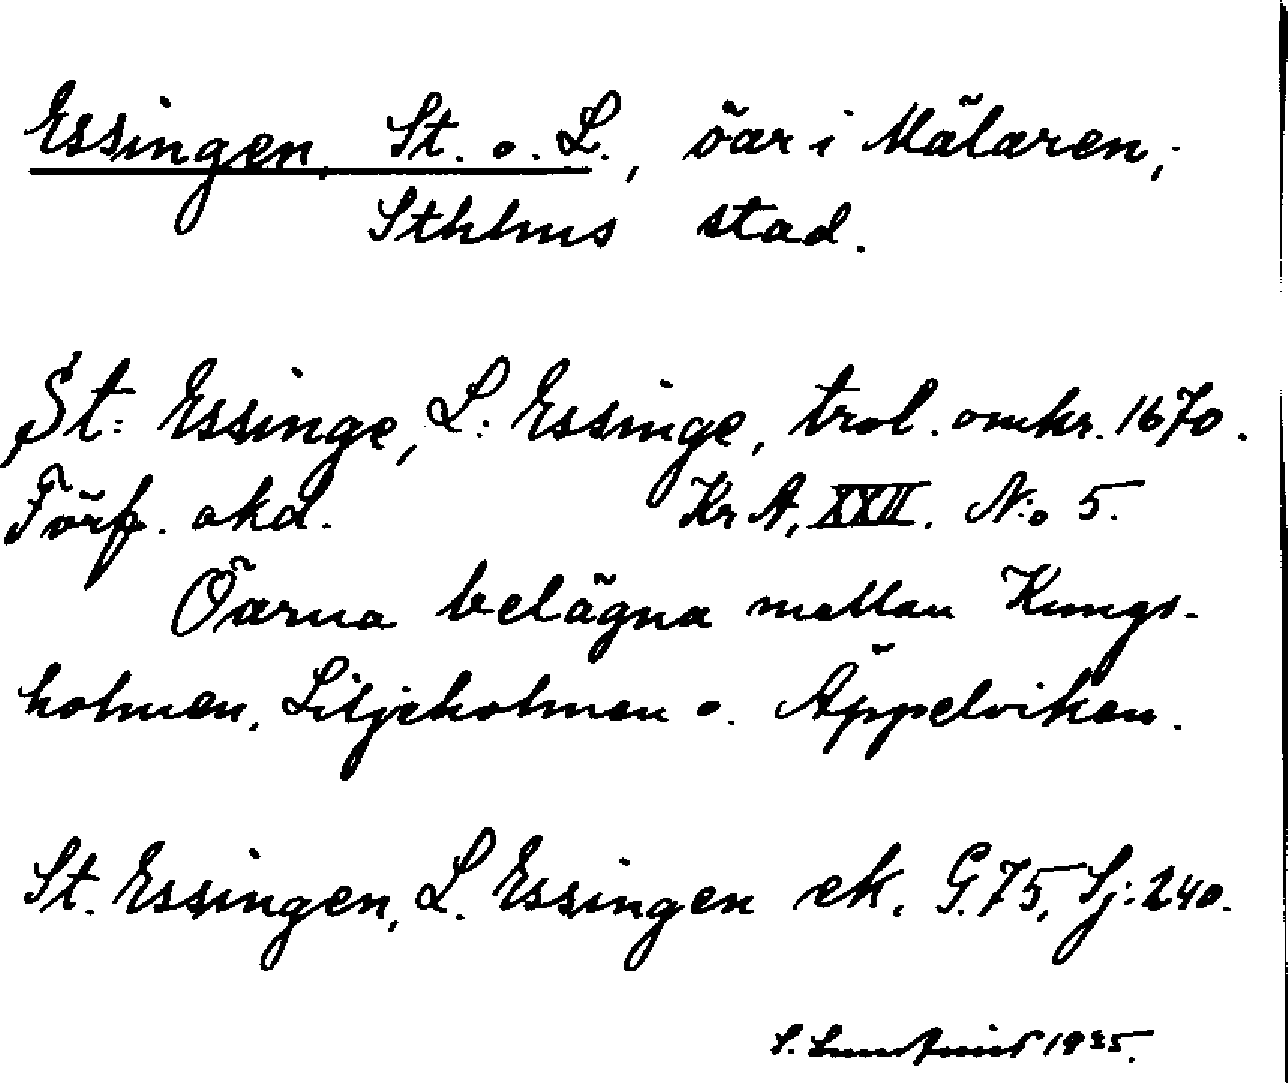 Essingen, St. o. L., öar i Mälaren,
Sthlms stad.
St: Essinge, L: Essinge, trol. omkr. 1670.
Förf. okd. Kr A, XXII. N:o 5.
Öarna belägna mellan Kungs-
holmen, Liljeholmen o. Äppelviken.
St. Essingen, L. Essingen ek. G. 75, Sj: 240.
S. Lundqvist 1935.